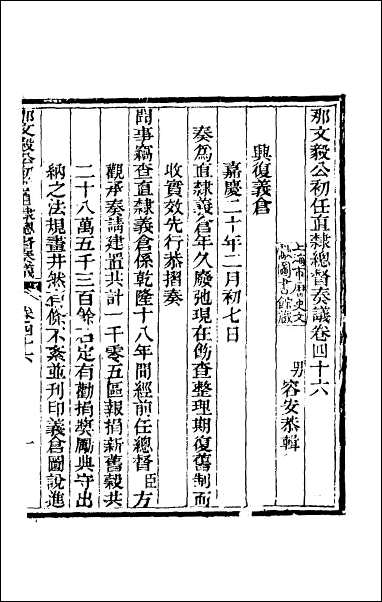 那文毅公初任直隸總督奏議卷四十六
上海市歷史文
獻圖書館藏
男 容安恭輯
興復義倉
嘉慶二十年二月初七日
奏為直隸義倉年久廢弛現在飭查整理期復舊制而
收實效先行恭摺奏
聞事竊查直隸義倉係乾隆十八年間經前任總督臣方
觀承奏請建置共計一千零五區報捐新舊穀共
二十八萬五千三百餘石定有勸捐獎勵典守出
納之法規畫井然有條不紊並刊印義倉圖說進
那文毅公初任直隸總督奏議
卷四十六
一